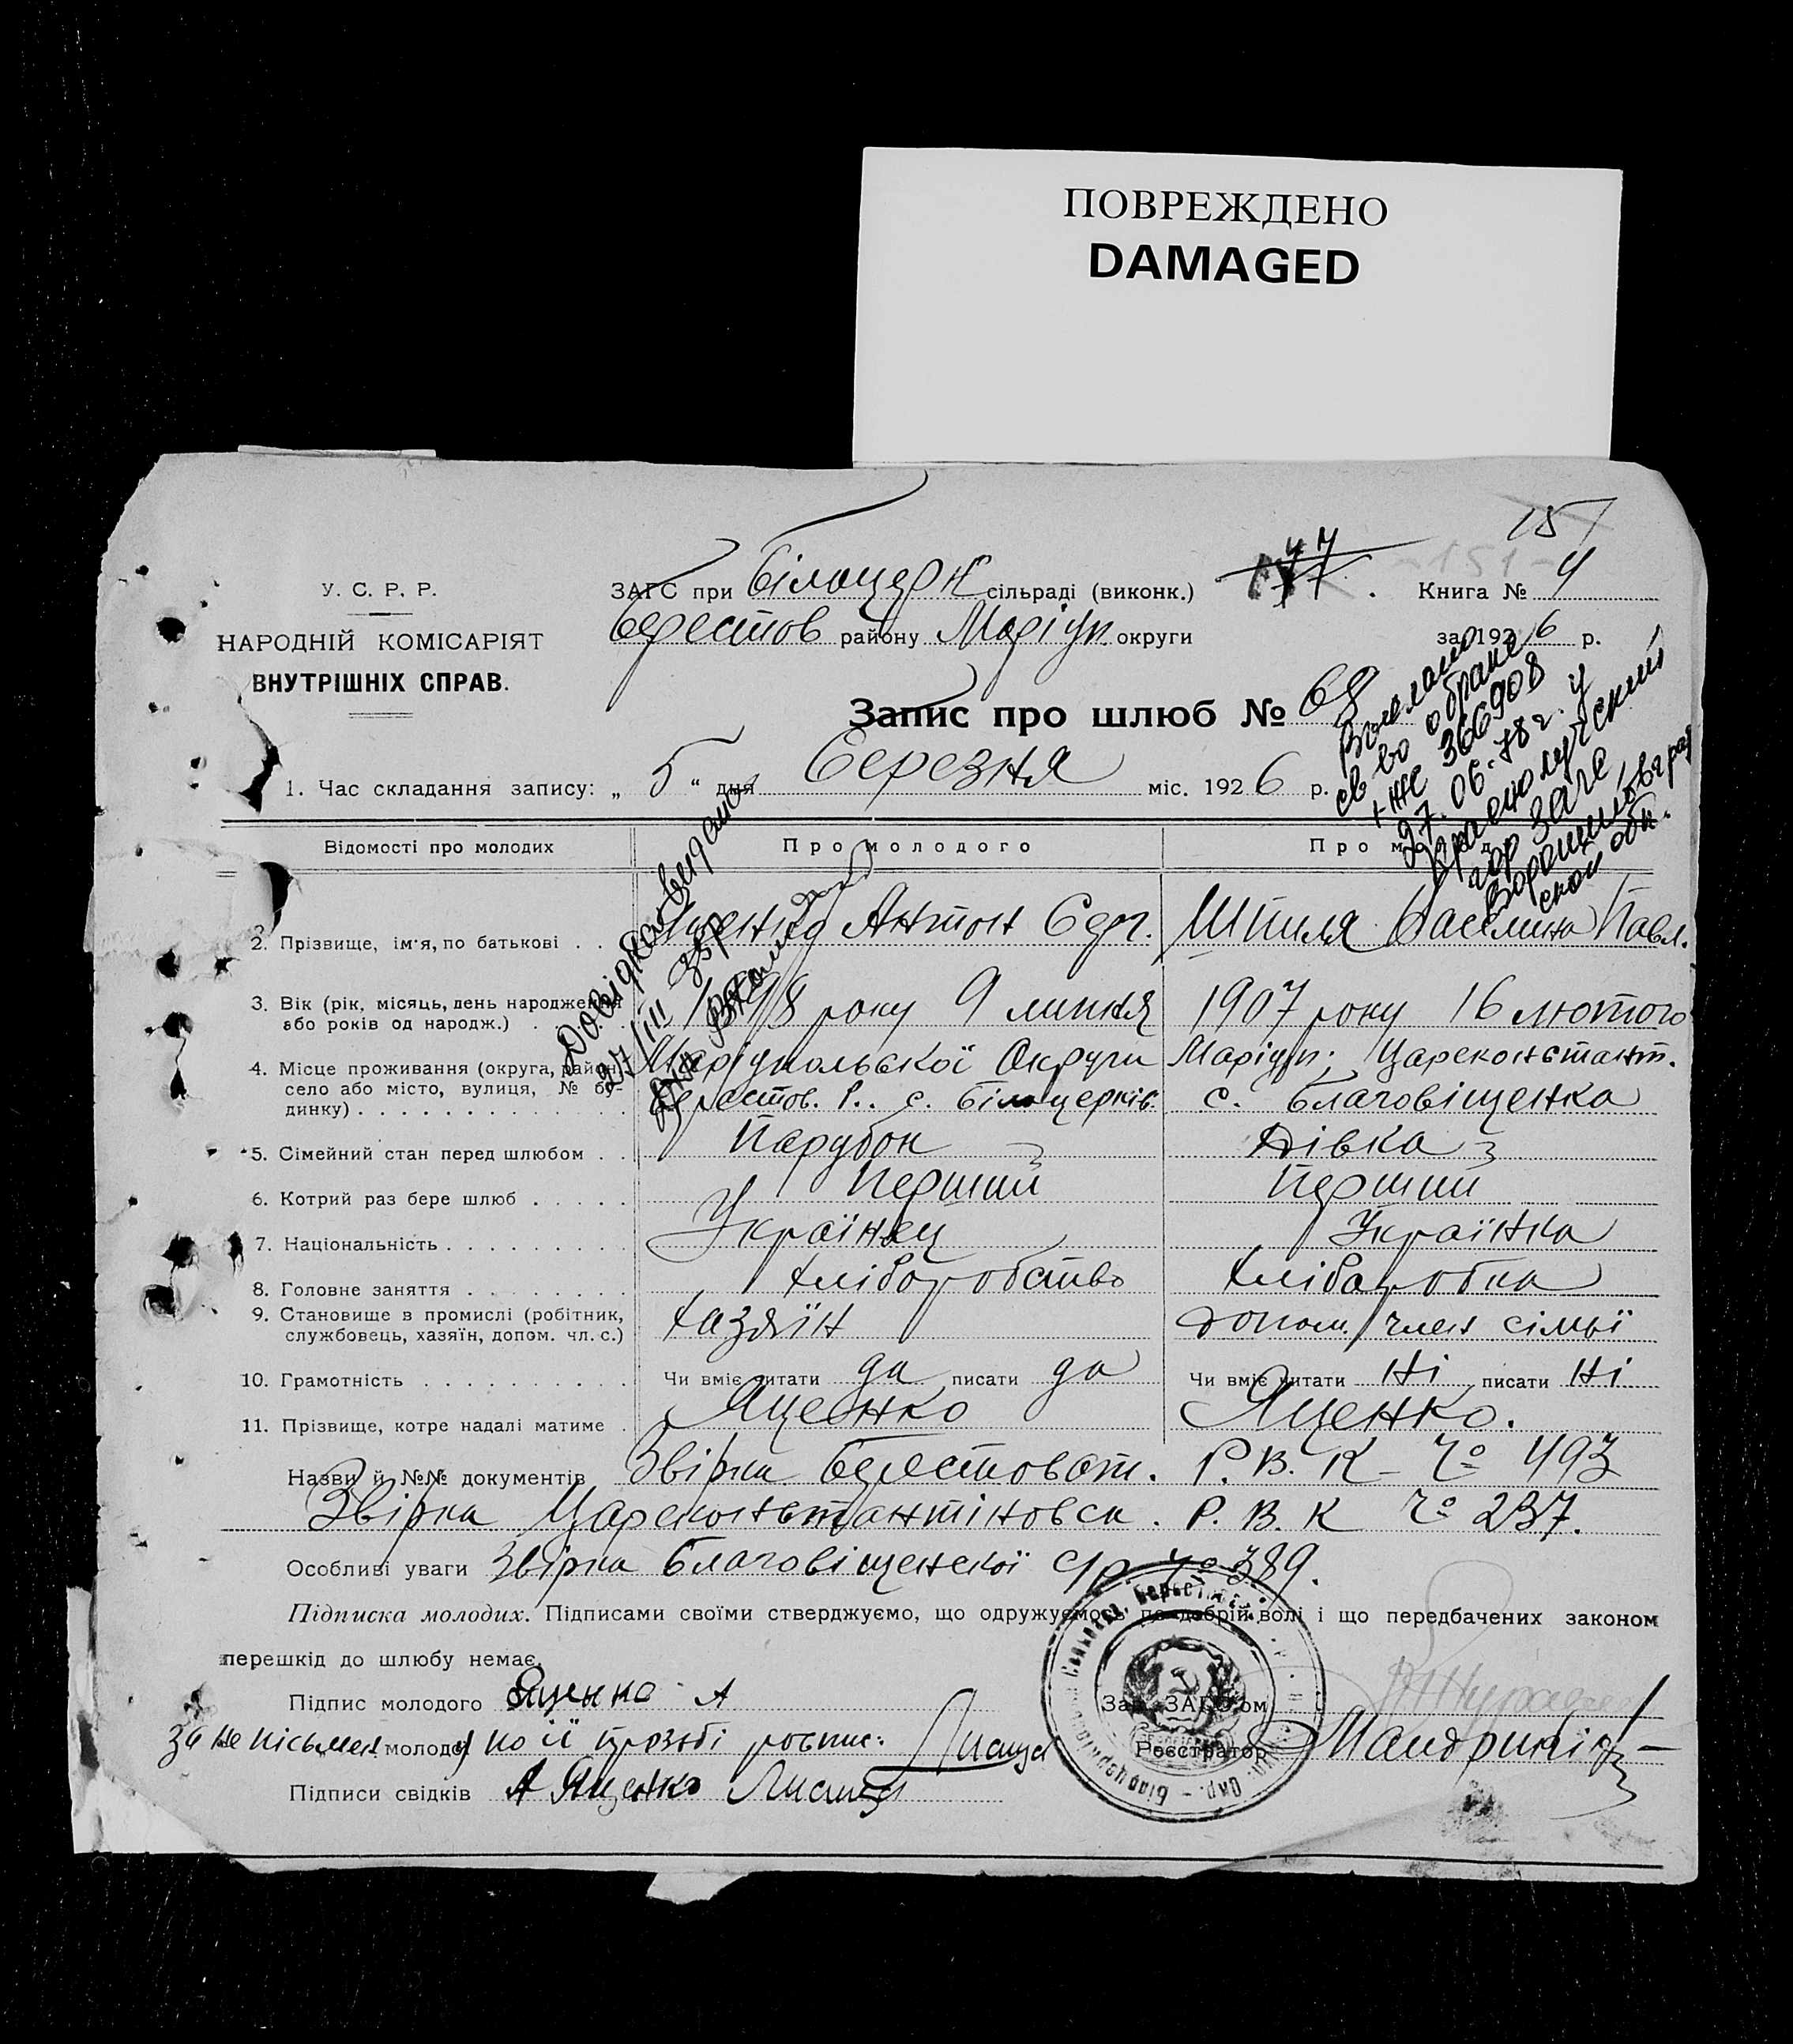 ПОВРЕЖДЕНО
DAMAGED
151
У. С. Р. Р.
НАРОДНІЙ КОМІСАРІЯТ
ВНУТРІШНІХ СПРАВ.
ЗАГС при Білоцерк сільраді (виконк.)
77.
-151-
Книга № 4
Берестов району Маріуп. округи
за 1926 р.
Запис про шлюб № 68
1. Час складання запису: „ 5 “ дня Березня міс. 1926 р.
св во о браке
366908
27.06.78 г. у
Краснолучский
гор ЗАГС
Ворошиловград
ской обл.
Відомості про молодих
Про молодого
Довідка видана
27/III
2. Прізвище, ім'я, по батькові . .
Яценко Антон Серг.
Шпиля Василина Павл.
3. Вік (рік, місяць, день народження
або років од народж.)
1898 року 9 липня
1907 року 16 лютого
4. Місце проживання (округа, район,
село або місто, вулиця, № бу-
динку)
Маріупольскої Округи
Берестов. Р.. с. Білоцерків.
Маріуп. Цареконстант.
с. Благовіщенка
5. Сімейний стан перед шлюбом . .
Парубок
Дівка
6. Котрий раз бере шлюб
Перший
Перший
7. Національність
Українец
Українка
8. Головне заняття
Хліборобство
Хліборобка
9. Становище в промислі (робітник,
службовець, хазяїн, допом. чл. с.)
Хазяїн
Допом. член сімьї
10. Грамотність
Чи вміє читати да писати да
Чи вміє читати Ні писати Ні
11. Прізвище, котре надалі матиме .
Яценко
Яценко.
Назви й №№ документів Звірка Берестоват. Р. В. К №
Звірка Цареконстантіновск. Р. В. К № 237.
Особливі уваги Звірка Благовіщенскої с/р № 389.
Підписка молодих. Підписами своїми стверджуємо, що одружуємось по добрій волі і що передбачених законом
перешкід до шлюбу немає.
Підпис молодого Яценко А
Зав. ЗАГС'ом
За не пісьмен. молоду по її прозьбі роспис:
Реєстратор
Підписи свідків А Яценко